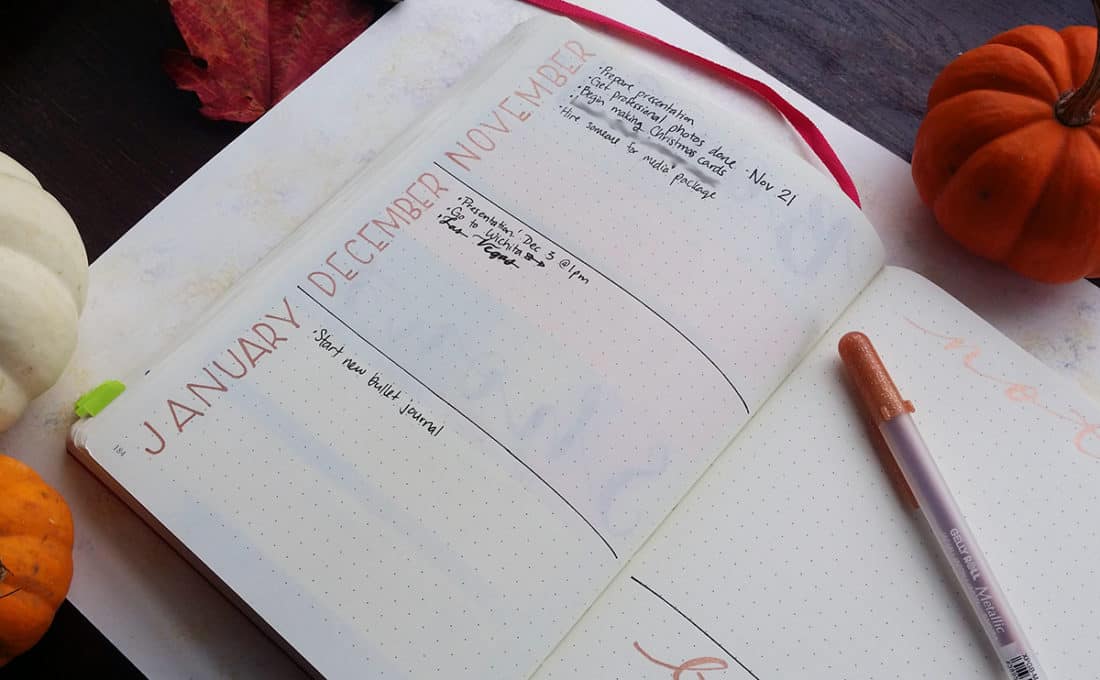 NOVEMBER
·Prepare presentation
·Get professional photos done · Nov 21
·Begin making Christmas cards
·Hire someone for media package
DECEMBER
·Presentation! Dec 5 @ 1pm
·Go to Wichita
·Las Vegas
JANUARY
·Start new bullet journal
184
GELLY ROLL
Metallic